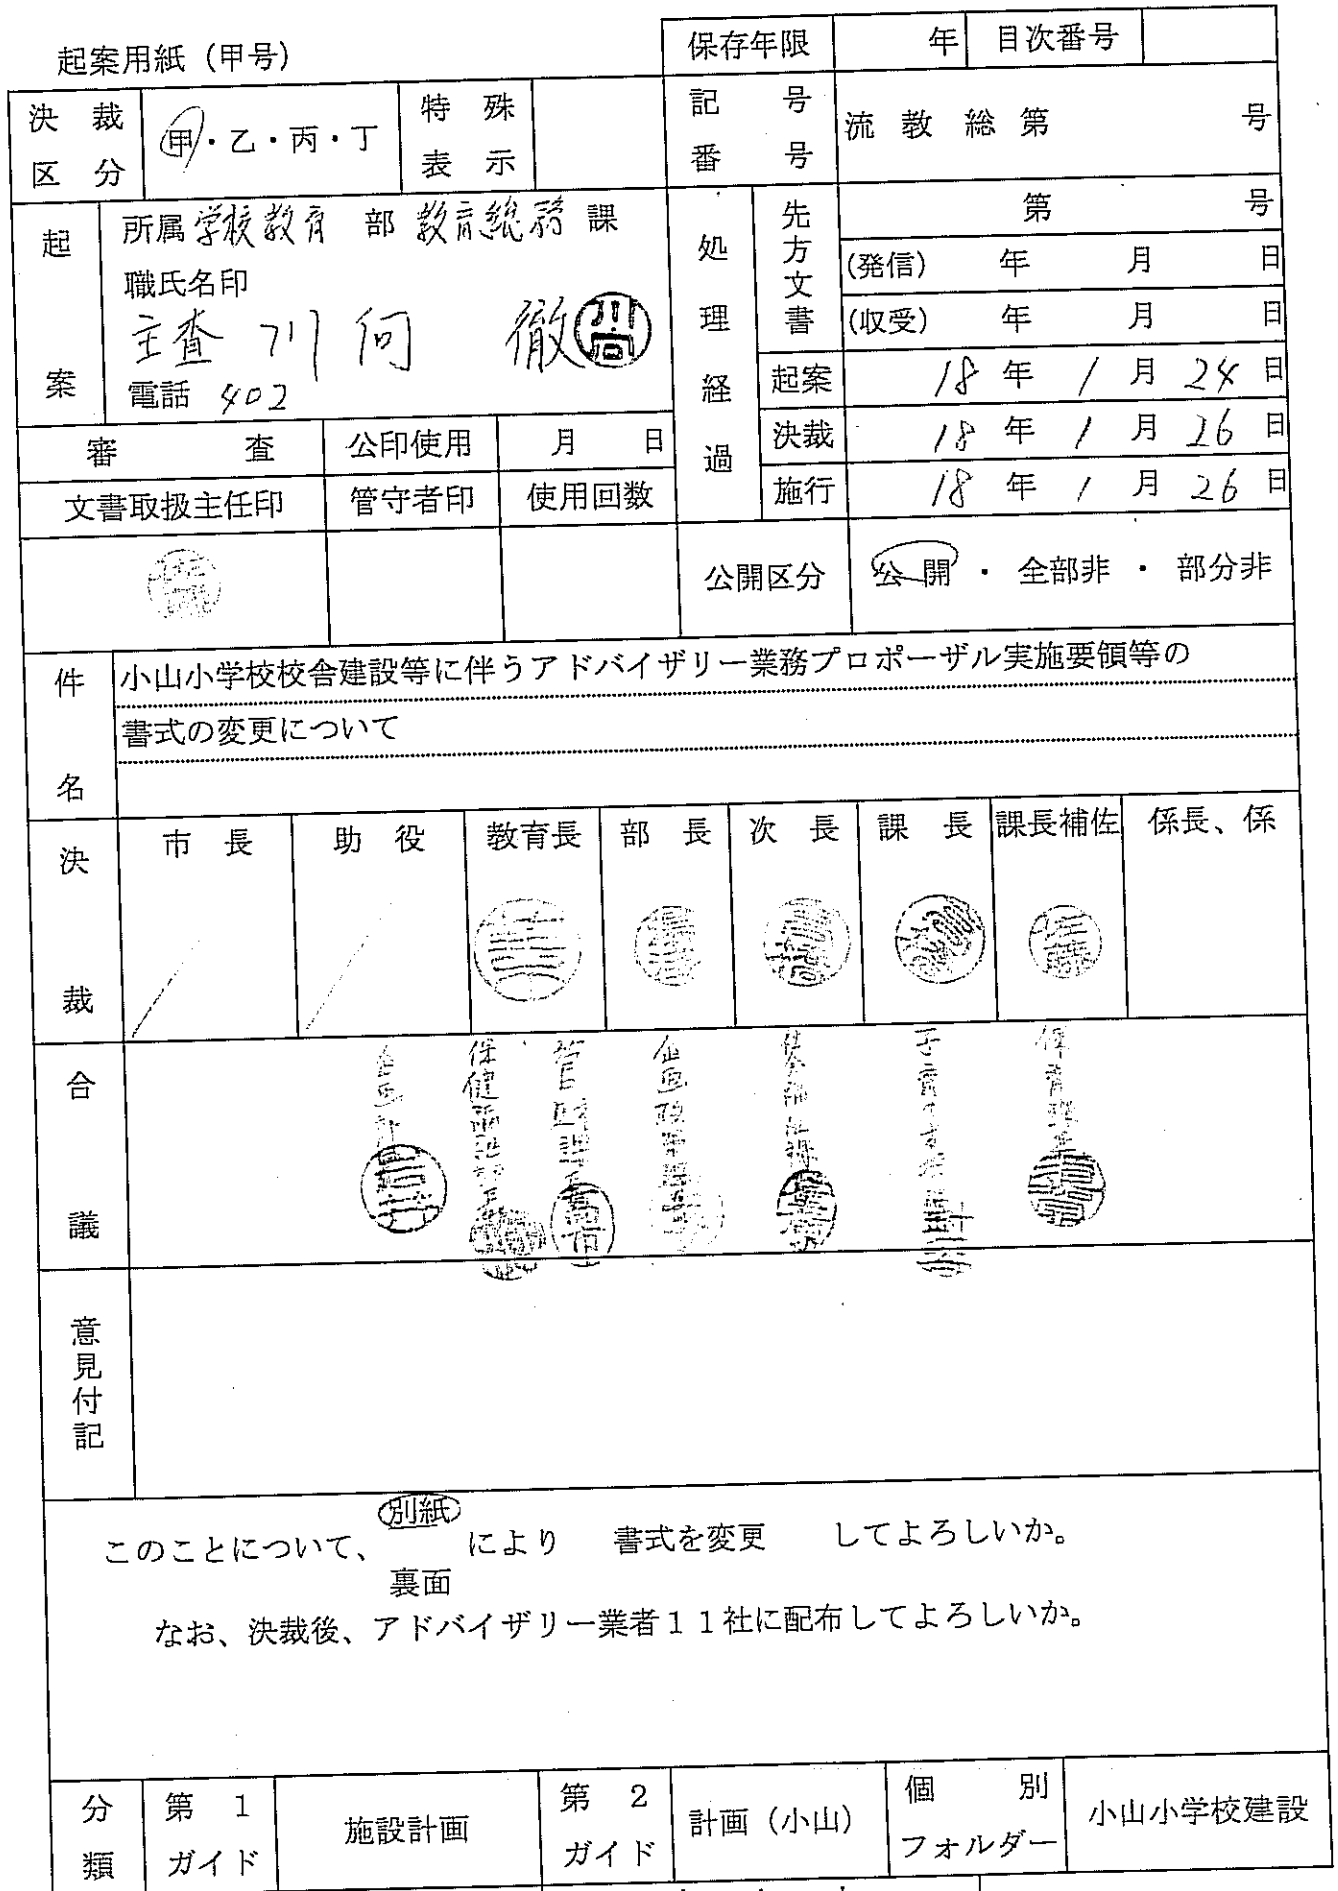 起案用紙（甲号）
保存年限　年　目次番号
決裁区分　甲・乙・丙・丁　特殊表示
記号番号　流教総第　号
起案
所属 学校教育 部 教育総務 課
職氏名印
主査 川向 徹
電話 402
処理経過
先方文書
第　号
(発信)　年　月　日
(収受)　年　月　日
起案　18年1月24日
決裁　18年1月26日
施行　18年1月26日
審査　公印使用　月　日
文書取扱主任印　管守者印　使用回数
公開区分　公開・全部非・部分非
件名
小山小学校校舎建設等に伴うアドバイザリー業務プロポーザル実施要領等の
書式の変更について
決裁
市長　助役　教育長　部長　次長　課長　課長補佐　係長、係
高橋　佐藤
合議
意見付記
別紙
このことについて、　により　書式を変更　してよろしいか。
裏面
なお、決裁後、アドバイザリー業者１１社に配布してよろしいか。
分類　第1ガイド　施設計画　第2ガイド　計画（小山）　個別フォルダー　小山小学校建設